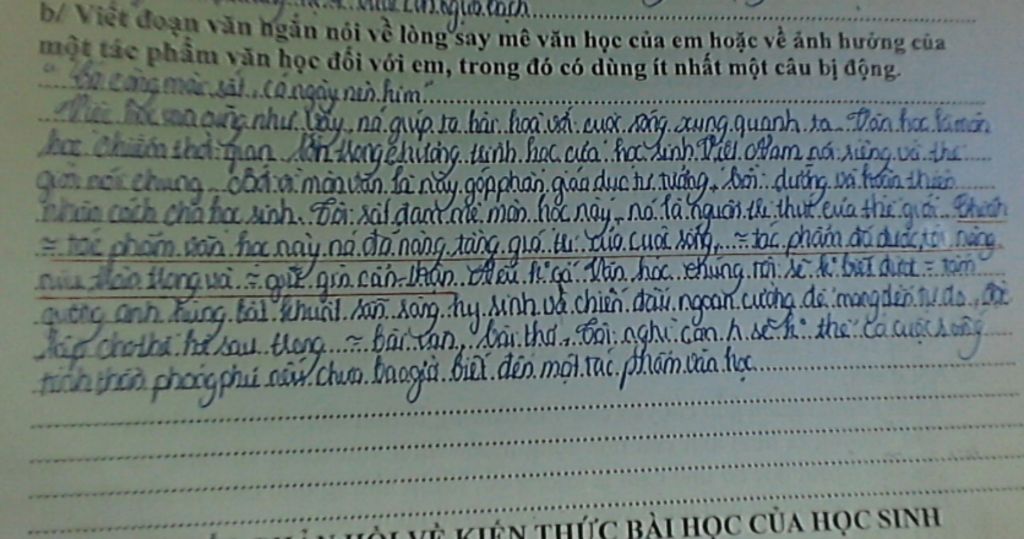 b/ Viết đoạn văn ngắn nói về lòng say mê văn học của em hoặc về ảnh hưởng của
một tác phẩm văn học đối với em, trong đó có dùng ít nhất một câu bị động.
"Có công mài sắt, có ngày nên kim"
như vậy, nó giúp ta hài hoà với cuộc sống xung quanh ta. Văn học là môn
học chiếm thời gian lớn trong chương trình học của học sinh Việt Nam nói riêng và thế
giới nói chung. Bởi vì môn văn là này góp phần giáo dục tư tưởng, bồi dưỡng và hoàn thiện
nhân cách cho học sinh. Tôi rất đam mê môn học này, nó là nguồn tri thức của thế giới.
= tác phẩm văn học này nó đã nâng tầng giá trị của cuộc sống, = tác phẩm đó được tôi nâng
niu trân trọng và = giữ gìn cẩn thận. Nếu k có văn học chúng tôi sẽ k biết được = tấm
gương anh hùng bất khuất sẵn sàng hy sinh và chiến đấu ngoan cường để mang đến tự do,
lập cho thế hệ sau trong = bài văn, bài thơ. Tôi nghĩ con n sẽ k thể có cuộc sống
tinh thần phong phú nếu chưa bao giờ biết đến một tác phẩm văn học.
HỒI VỀ KIẾN THỨC BÀI HỌC CỦA HỌC SINH